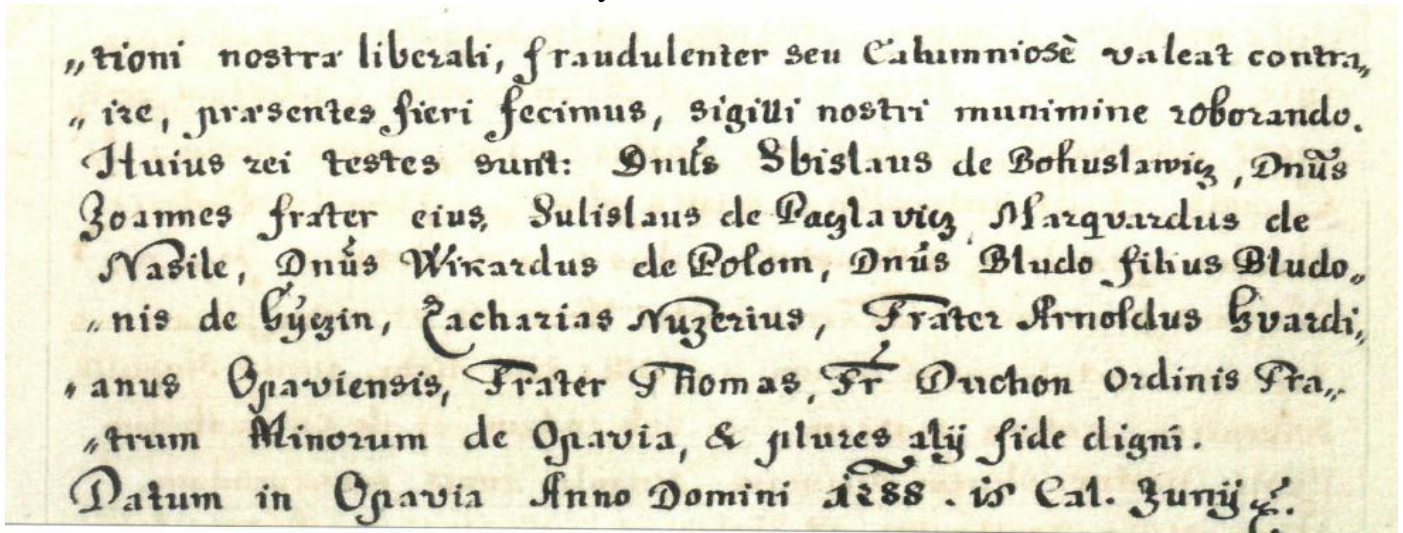 „tioni nostræ liberali, fraudulenter seu Calumniosè valeat contra„
„ire, præsentes fieri fecimus, sigilli nostri munimine roborando.
Huius rei testes sunt: Dnus Sbislaus de Bohuslawicz, Dnus
Joannes frater eius, Sulislaus de Paczlavicz, Marqvardus de
Nasile, Dnus Wikardus de Polom, Dnus Bludo filius Bludo„
„nis de Gyczin, Zacharias Nuzerius, Frater Arnoldus Gvardi„
„anus Opaviensis, Frater Thomas, Fr Duchon Ordinis Fra„
„trum Minorum de Opavia, & plures alij fide digni.
Datum in Opavia Anno Domini 1288. is Cal. Junij